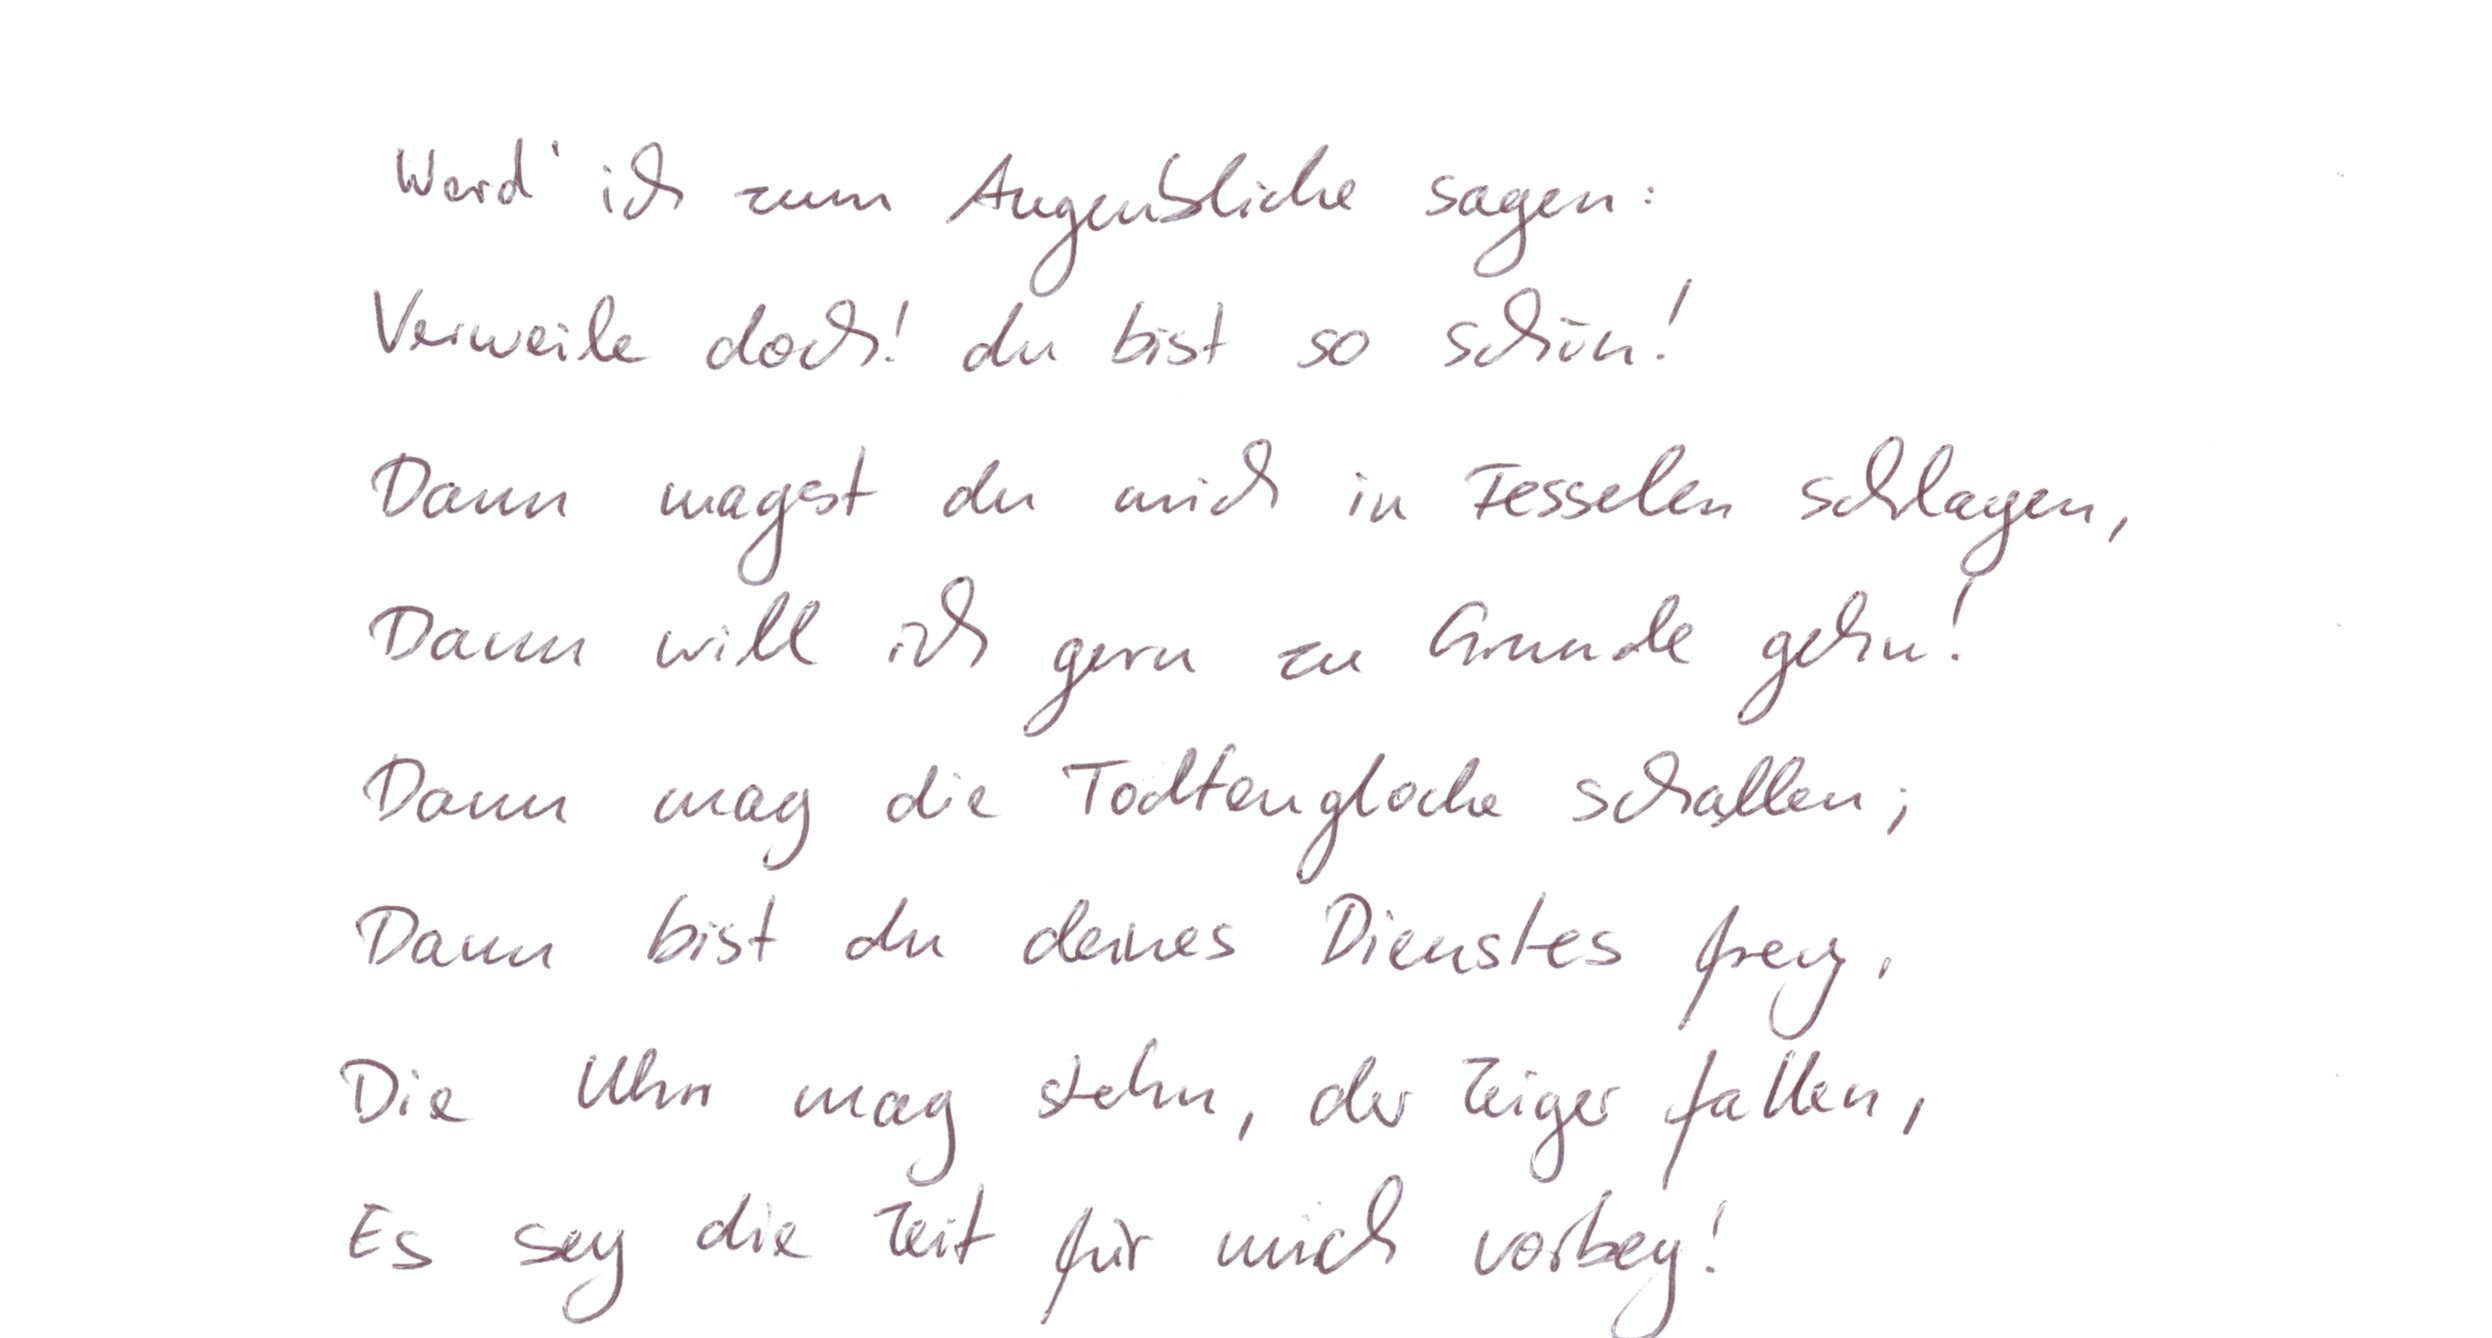 Werd' ich zum Augenblicke sagen:
Verweile doch! du bist so schön!
Dann magst du mich in Fesseln schlagen,
Dann will ich gern zu Grunde gehn!
Dann mag die Todtenglocke schallen;
Dann bist du deines Dienstes frey,
Die Uhr mag stehn, der Zeiger fallen,
Es sey die Zeit für mich vorbey!